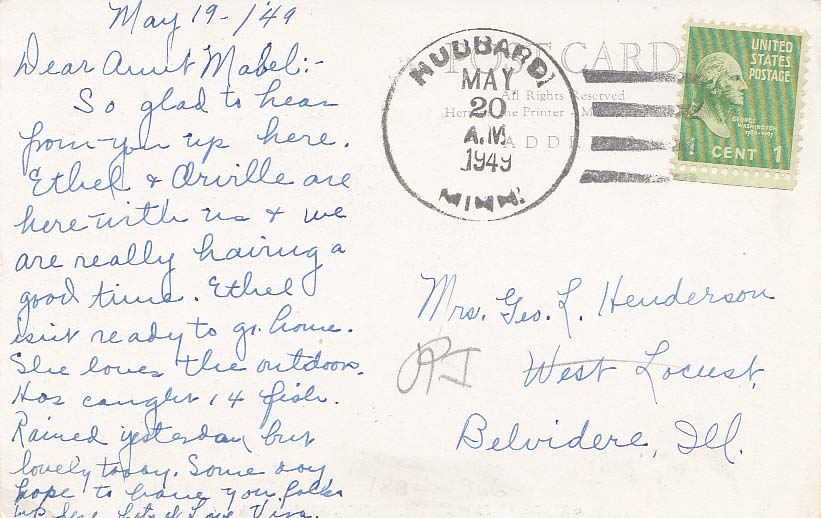 May 19-/'49
Dear Aunt Mabel:-
So glad to hear
from you up here.
Ethel & Orville are
here with us & we
are really having a
good time. Ethel
isn't ready to go home.
She loves the outdoors.
Has caught 14 fish.
Rained yesterday but
lovely today. Some day
hope to have you folks
up here. Lots of Love Vera.
POSTCARD
All Rights Reserved
ADDR
HUBBARD
MAY
20
A.M.
1949
MINN.
UNITED
STATES
POSTAGE
GEORGE
WASHINGTON
1789-1797
1 CENT 1
Mrs. Geo. L. Henderson
RI
West Locust,
Belvidere, Ill.